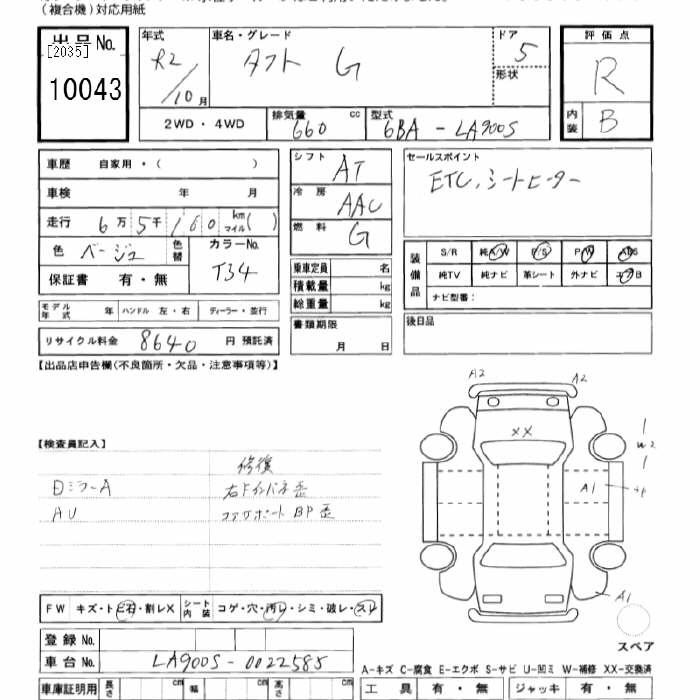 (複合機)対応用紙
出品No.
[2035]
10043
年式
R2/10月
車名・グレード
タフト G
ドア
5
形状
評価点
R
内装
B
2WD・4WD
排気量
660
cc
型式
6BA-LA900S
車歴 自家用・( )
車検 年 月
走行 6万5千160 km マイル( )
色 ベージュ
色替
カラーNo.
T34
保証書 有・無
シフト AT
冷房 AAC
燃料 G
乗車定員 名
積載量 kg
総重量 kg
セールスポイント
ETC、シートヒーター
装備品
S/R 純A/W P/S P/W ABS
純TV 純ナビ 革シート 外ナビ エアB
ナビ型番:
モデル年式 年 ハンドル 左・右 ディーラー・並行
リサイクル料金 8640 円 預託済
書類期限
月 日
後日品
【出品店申告欄(不良箇所・欠品・注意事項等)】
A2
A2
XX
W2
A1
A1
【検査員記入】
修復
ミラーA
AU
FW キズ・ト石・割レX
シート内装 コゲ・穴・汚レ・シミ・破レ・スレ
登録No.
車台No. LA900S-0022585
スペア
A-キズ C-腐食 E-エクボ S-サビ U-凹ミ W-補修 XX-交換済
車庫証明用 長さ cm 幅 cm 高さ cm
工具 有・無 ジャッキ 有・無